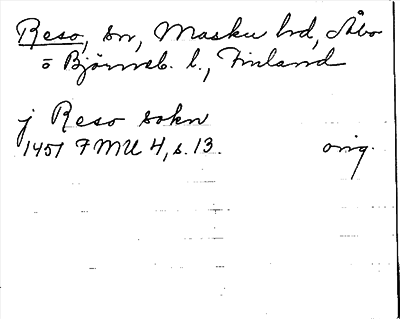 Reso, sn, Masku hd, Åbo
o Björneb. l., Finland
j Reso sokn
1451 FMU 4, s. 13. orig.